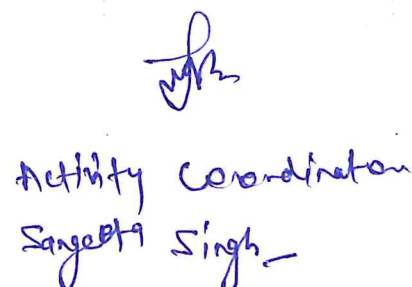 Activity Coordinator
Sangeeta Singh